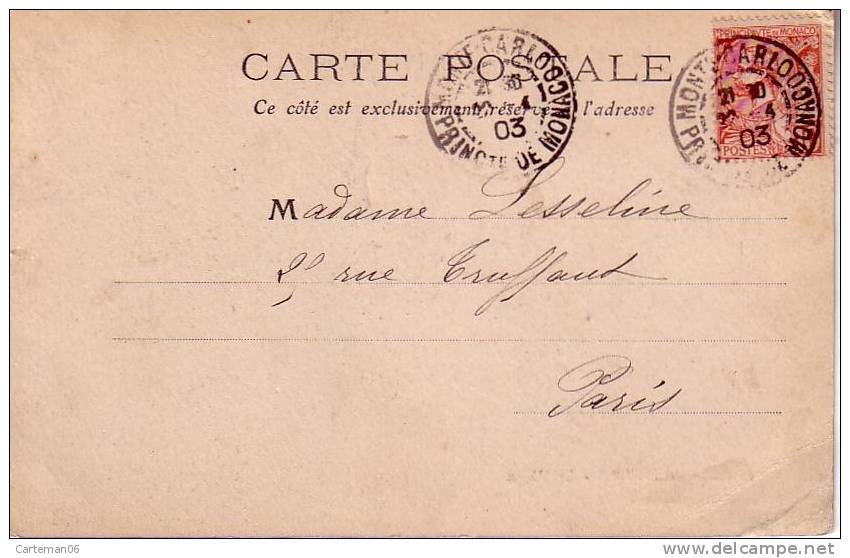 PRINCIPAUTÉ DE MONACO
CARTE POSTALE
Ce côté est exclusivement réservé à l'adresse
MONTE-CARLO
21 30
5 - 4
03
PRINCTÉ DE MONACO
MONTE-CARLO
21 30
4
03
PRINCTÉ DE MONACO
POSTES
Madame Lesseline
rue Truffaut
Paris
Carteman06
delcampe.net